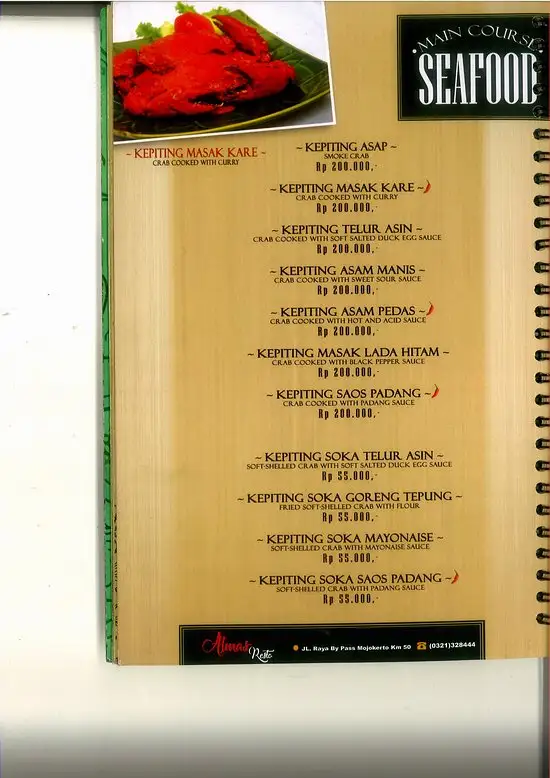 MAIN COURSE
SEAFOOD
~ KEPITING MASAK KARE ~
CRAB COOKED WITH CURRY
~ KEPITING ASAP ~
SMOKE CRAB
Rp 200.000,-
~ KEPITING MASAK KARE ~
CRAB COOKED WITH CURRY
Rp 200.000,-
~ KEPITING TELUR ASIN ~
CRAB COOKED WITH SOFT SALTED DUCK EGG SAUCE
Rp 200.000,-
~ KEPITING ASAM MANIS ~
CRAB COOKED WITH SWEET SOUR SAUCE
Rp 200.000,-
~ KEPITING ASAM PEDAS ~
CRAB COOKED WITH HOT AND ACID SAUCE
Rp 200.000,-
~ KEPITING MASAK LADA HITAM ~
CRAB COOKED WITH BLACK PEPPER SAUCE
Rp 200.000,-
~ KEPITING SAOS PADANG ~
CRAB COOKED WITH PADANG SAUCE
Rp 200.000,-
~ KEPITING SOKA TELUR ASIN ~
SOFT-SHELLED CRAB WITH SOFT SALTED DUCK EGG SAUCE
Rp 55.000,-
~ KEPITING SOKA GORENG TEPUNG ~
FRIED SOFT-SHELLED CRAB WITH FLOUR
Rp 55.000,-
~ KEPITING SOKA MAYONAISE ~
SOFT-SHELLED CRAB WITH MAYONAISE SAUCE
Rp 55.000,-
~ KEPITING SOKA SAOS PADANG ~
SOFT-SHELLED CRAB WITH PADANG SAUCE
Rp 55.000,-
Resto
JL. Raya By Pass Mojokerto Km 50
(0321)328444